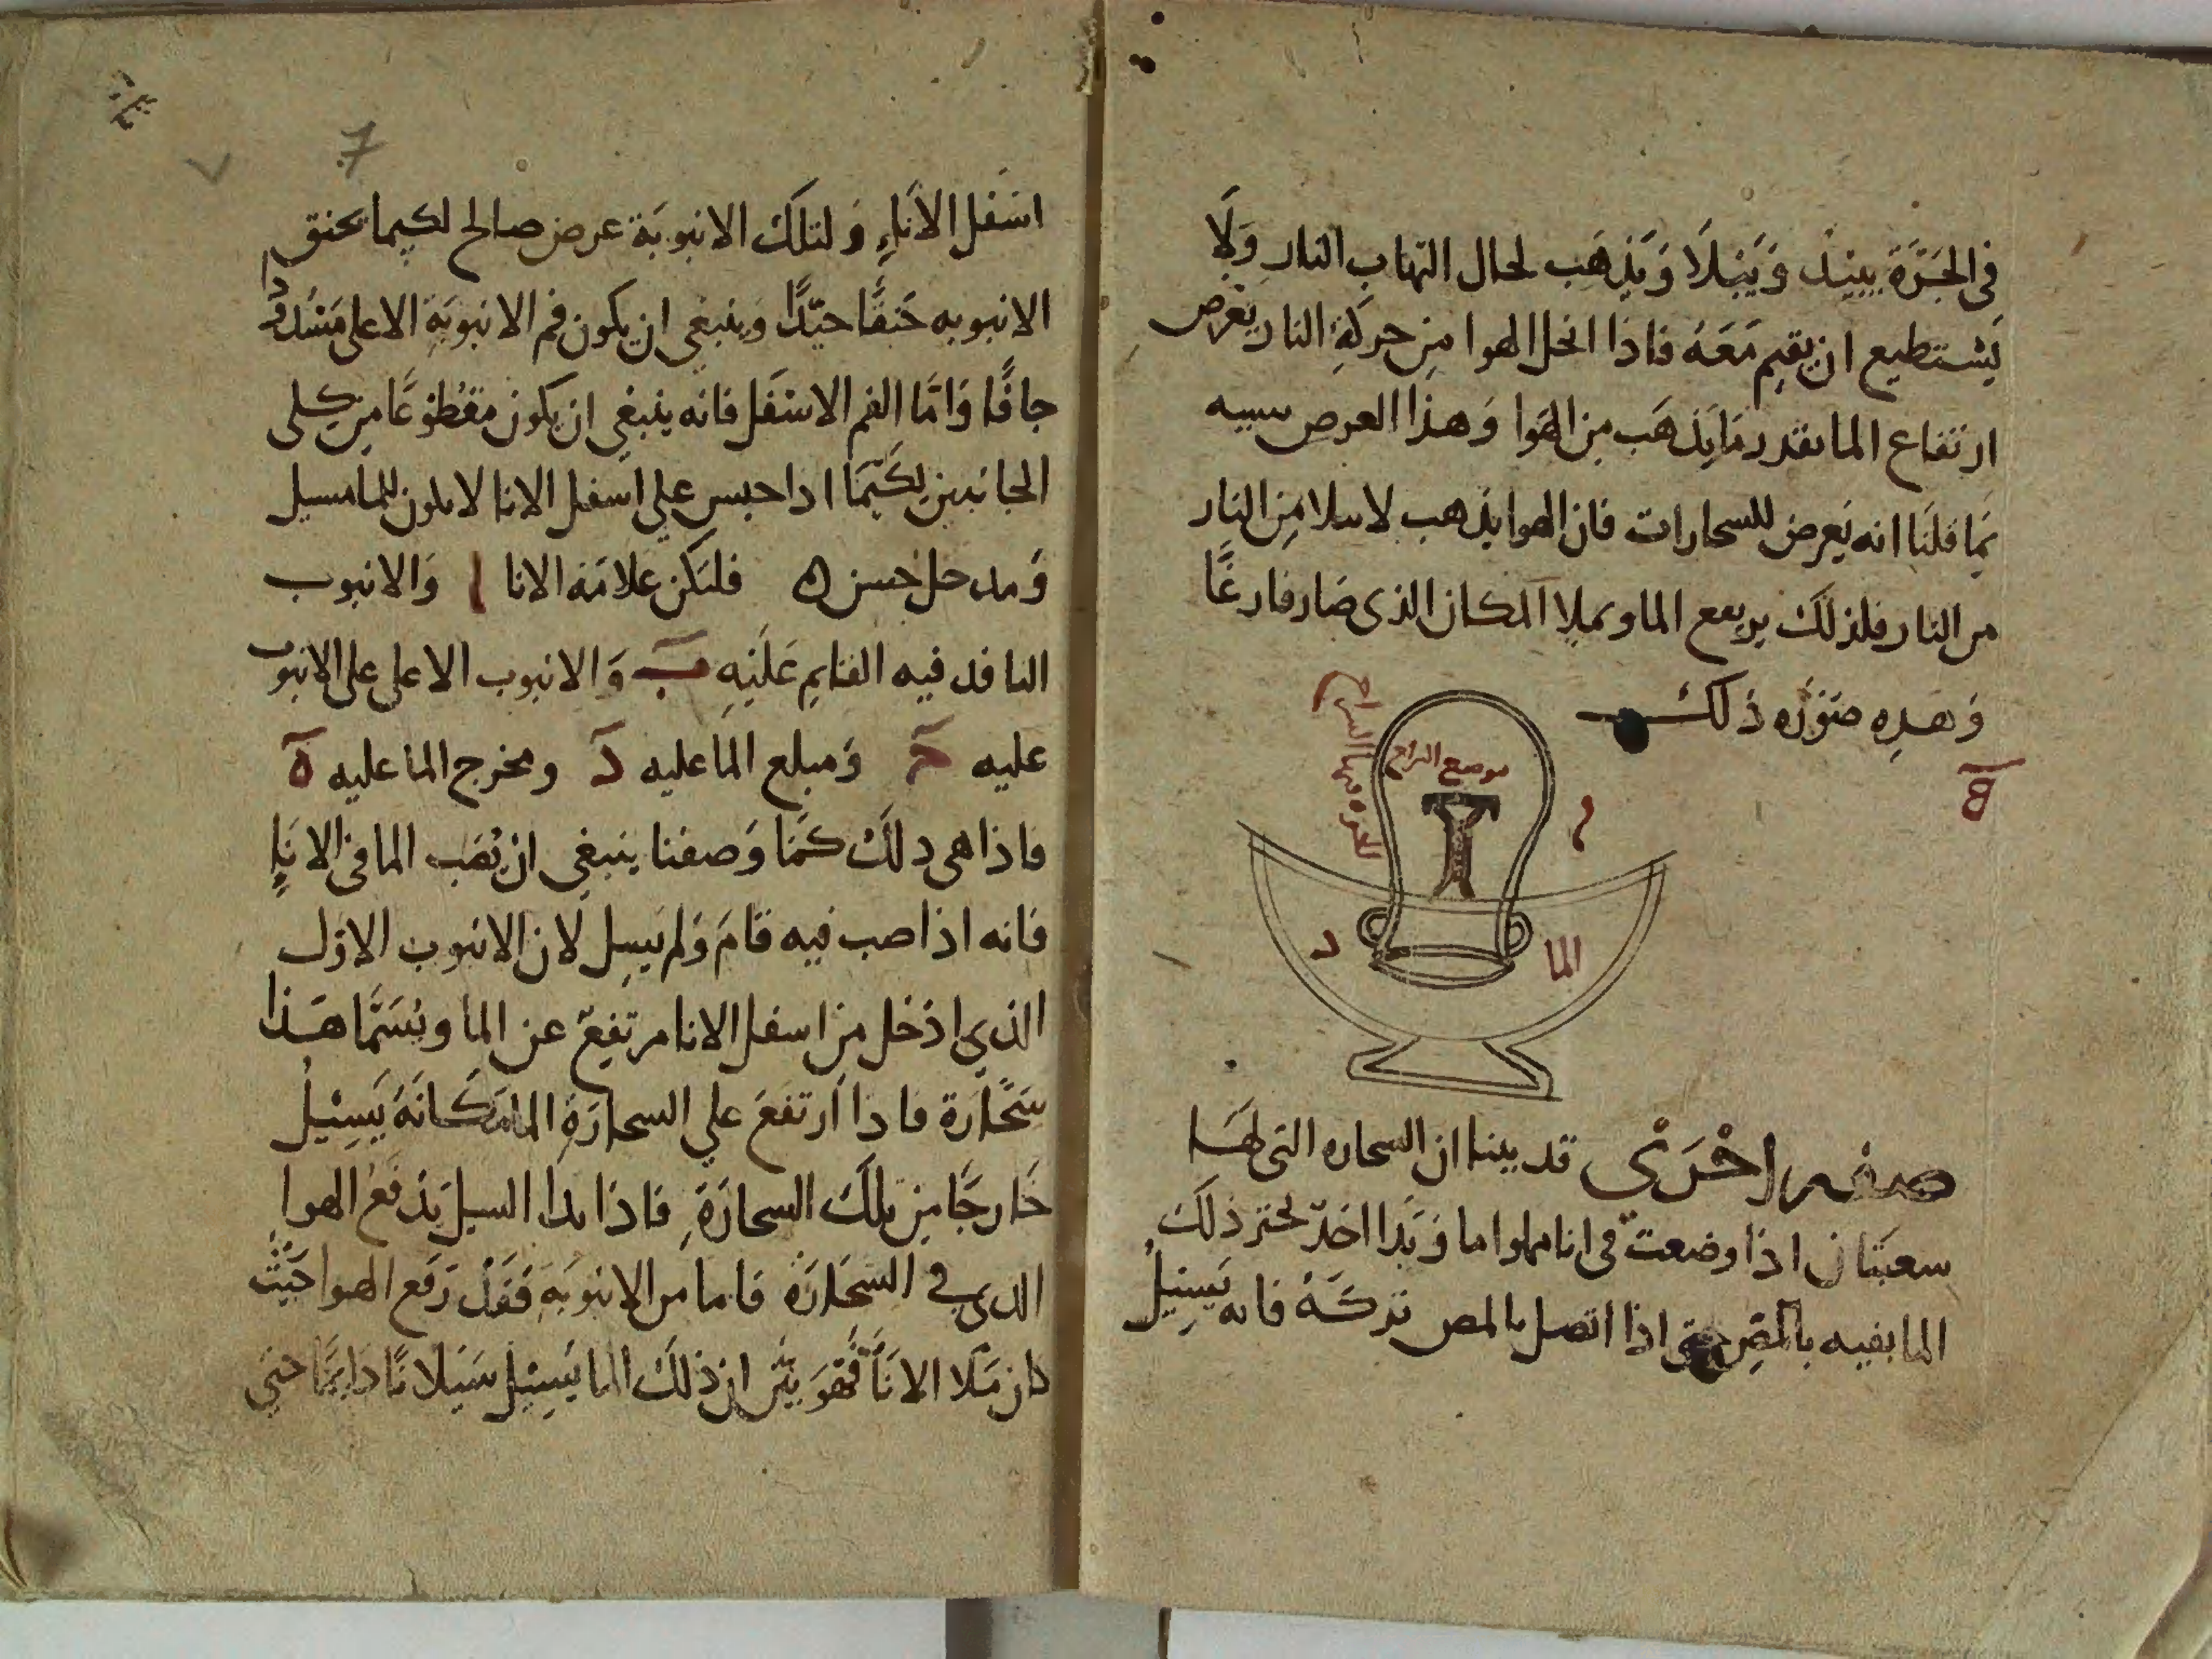 في الجَرَّة يبيد وَيَبلَا وَيَذهَب لحال التهاب النار وَلَا
يَستطيع ان يقيم مَعَهُ فاذا انحل الهوا مِن حركةِ النار يعرض
ارتفاع الما بقدر مَا يَذهَب مِن الهَوا وَهذا العرض سببه
بمَا قلنَا انه يَعرض للسحارات فان الهوا يذهب لا ببلا مِن النار
من النار فلذلك يرتفع الما ويملا المكان الذى صَار فارغًا
وَهذِه صَوُرَه ذلك
B
موضع السراج
الجره فيها السراج
ا
د
الما
صفه اخرَى قد بينا ان السحاره التى لهَا
سعبَتان اذا وضعت فى انا مملوا ما وَبَدا احَد بحتر ذلك
الما بفيه بالمَصِ حتى اذا اتصل بالمص تركهُ فانه يَسِيلُ
7
٧
اسَفل الانَاءِ وَلتلكَ الانبوبَة عرض صالح لكيما تخنق
الانبوبه خَنقًا جيّدًا وَينبغى ان يكون فم الانبوبَةِ الاعلى مَسُدودًا
جافًا وَامَّا الفم الاسَفل فانه ينبغى ان يكون مقطوعًا مِن كلى
الجانبين لكَيَما اذا حبس على اسفل الانا لا يكون للما مسيل
وَمدخل حَسن ه فلتكن علامَة الانا ا وَالانبوب
النافد فيه القايم عَليَهِ ب وَالانبوب الاعلى على الانبوب
عليه ج وَمبلع الما عليه د ومخرج الما عليه ه
فاذا هى ذلك كمَا وَصفنا ينبغى ان يُصَب الما فى الانَاءِ
فانه اذا صب فيه قامَ وَلم يَسِل لان الانبوب الاوَل
الذى ادَخل مِن اسفل الانا مرتفِعٌ عن الما ويُسَمَّا هَذا
سَحَّارَة فاذا ارَتفعَ على السحارَةِ الما مَكانَهُ يَسِيلُ
خَارجًا مِن تلكَ السحارَةِ فاذا بدا السيل يَدفَع الهوا
الذى فى السَحَّارَة فاما من الانبوبَةِ فَقَدْ رَفع الهوا حَيَثُ
كان مَلا الانَاَ فَهوَ بيّن ان ذلكَ الما يَسِيل سَيَلانًا دَايمًا حتى